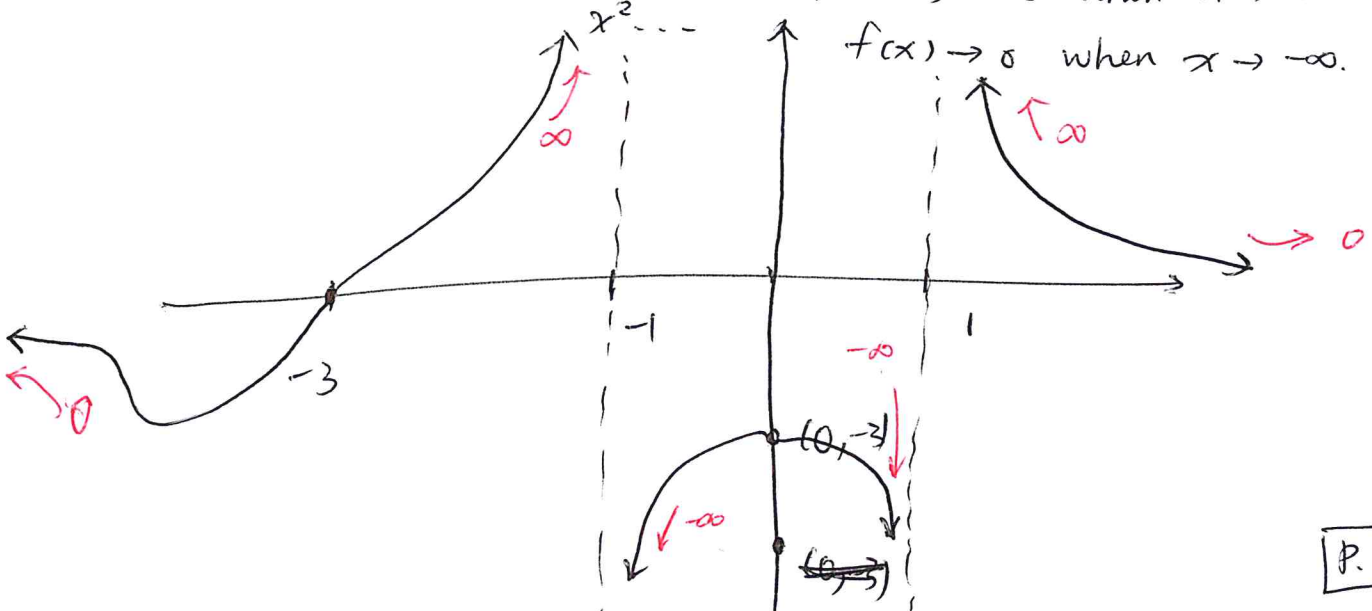 x² ....
f(x) → 0 when x → -∞.
∞
∞
→ 0
-1
1
-∞
-3
0
(0,-3)
-∞
(0,-3)
P.